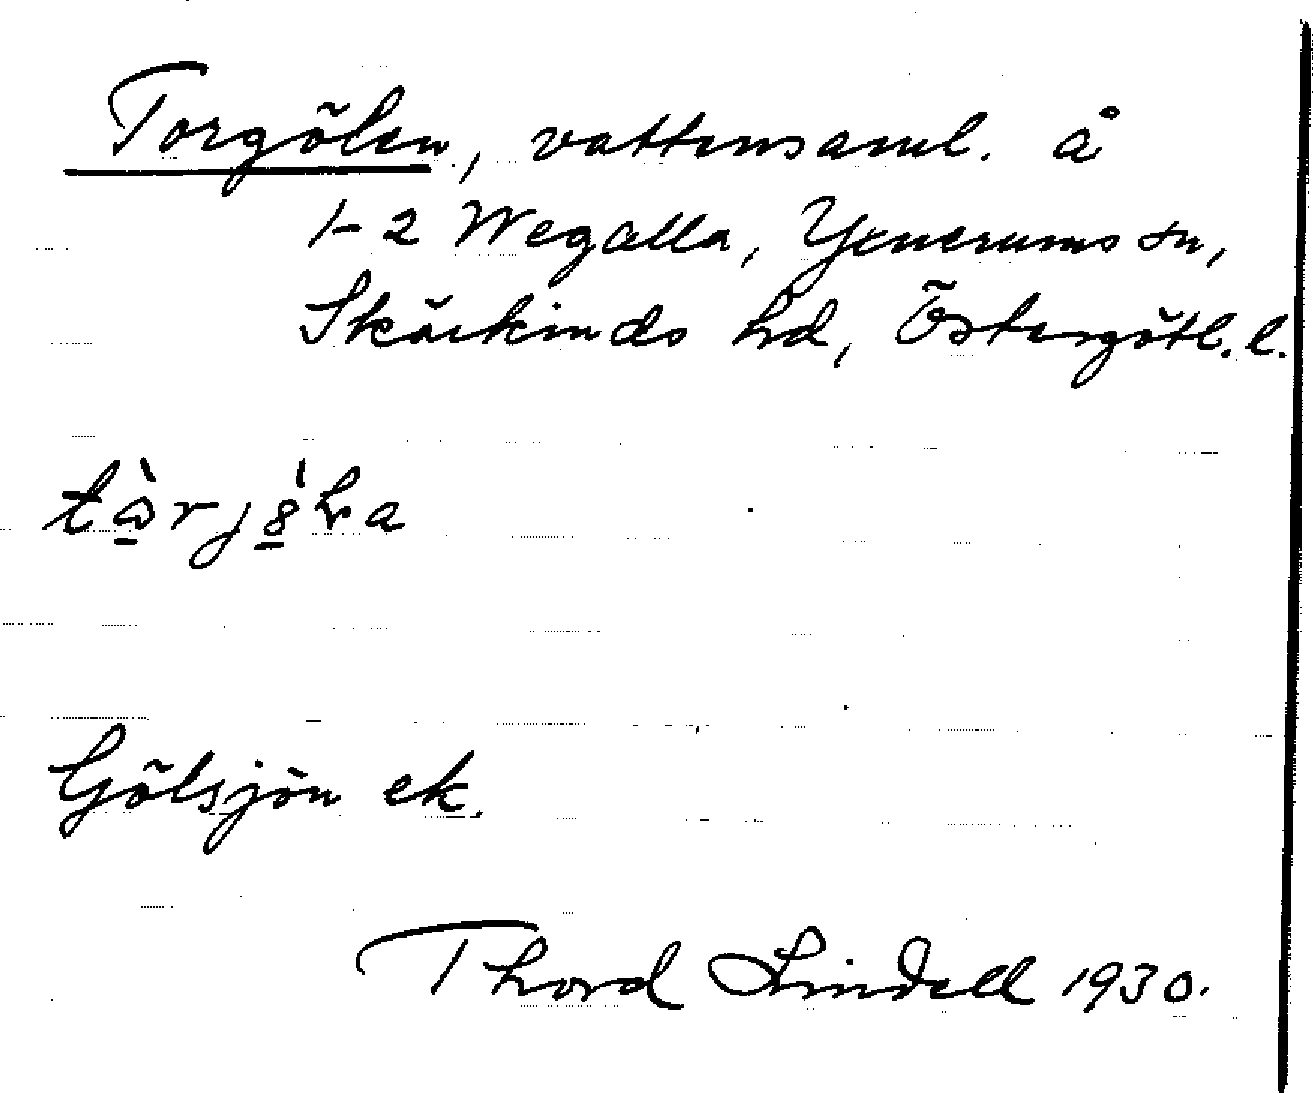 Torgölen, vattensaml. å
1-2 Wegalla, Yxnerums sn,
Skärkinds hd, Östergötl. l.
Gölsjön ek.
Thord Lindell 1930.